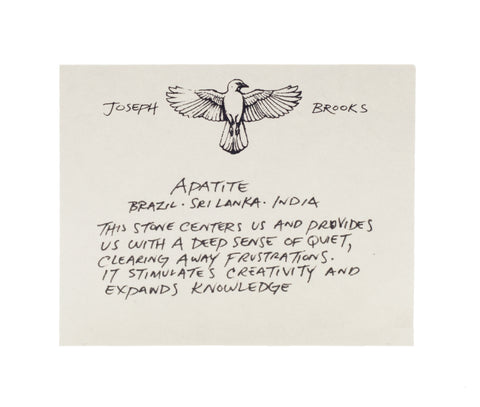 JOSEPH BROOKS
APATITE
BRAZIL · SRI LANKA · INDIA
THIS STONE CENTERS US AND PROVIDES
US WITH A DEEP SENSE OF QUIET,
CLEARING AWAY FRUSTRATIONS.
IT STIMULATES CREATIVITY AND
EXPANDS KNOWLEDGE